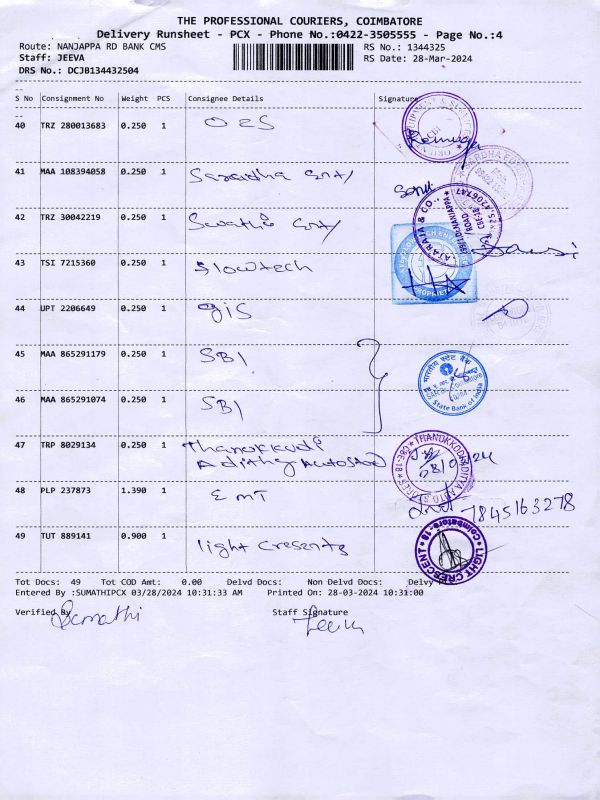 THE PROFESSIONAL COURIERS, COIMBATORE
Delivery Runsheet - PCX - Phone No.:0422-3505555 - Page No.:4
Route: NANJAPPA RD BANK CMS
RS No.: 1344325
Staff: JEEVA
RS Date: 28-Mar-2024
DRS No.: DCJB134432504
S No Consignment No Weight PCS Consignee Details Signature
40 TRZ 280013683 0.250 1 OES
41 MAA 108394058 0.250 1
42 TRZ 30042219 0.250 1 Swathi
43 TSI 7215360 0.250 1 Slowtech
44 UPT 2206649 0.250 1 GIS
45 MAA 865291179 0.250 1 SBI
46 MAA 865291074 0.250 1 SBI
भारतीय स्टेट बैंक
State Bank of India
47 TRP 8029134 0.250 1 Thanukkodi
Adithya AutoStod
48 PLP 237873 1.390 1 EMT
7845163278
49 TUT 889141 0.900 1 light Cresents
LIGHT CRESCENT Coimbatore-18
Tot Docs: 49 Tot COD Amt: 0.00 Delvd Docs: Non Delvd Docs:
Entered By :SUMATHIPCX 03/28/2024 10:31:33 AM Printed On: 28-03-2024 10:31:00
Verified By Staff Signature
Sumathi Jeeva